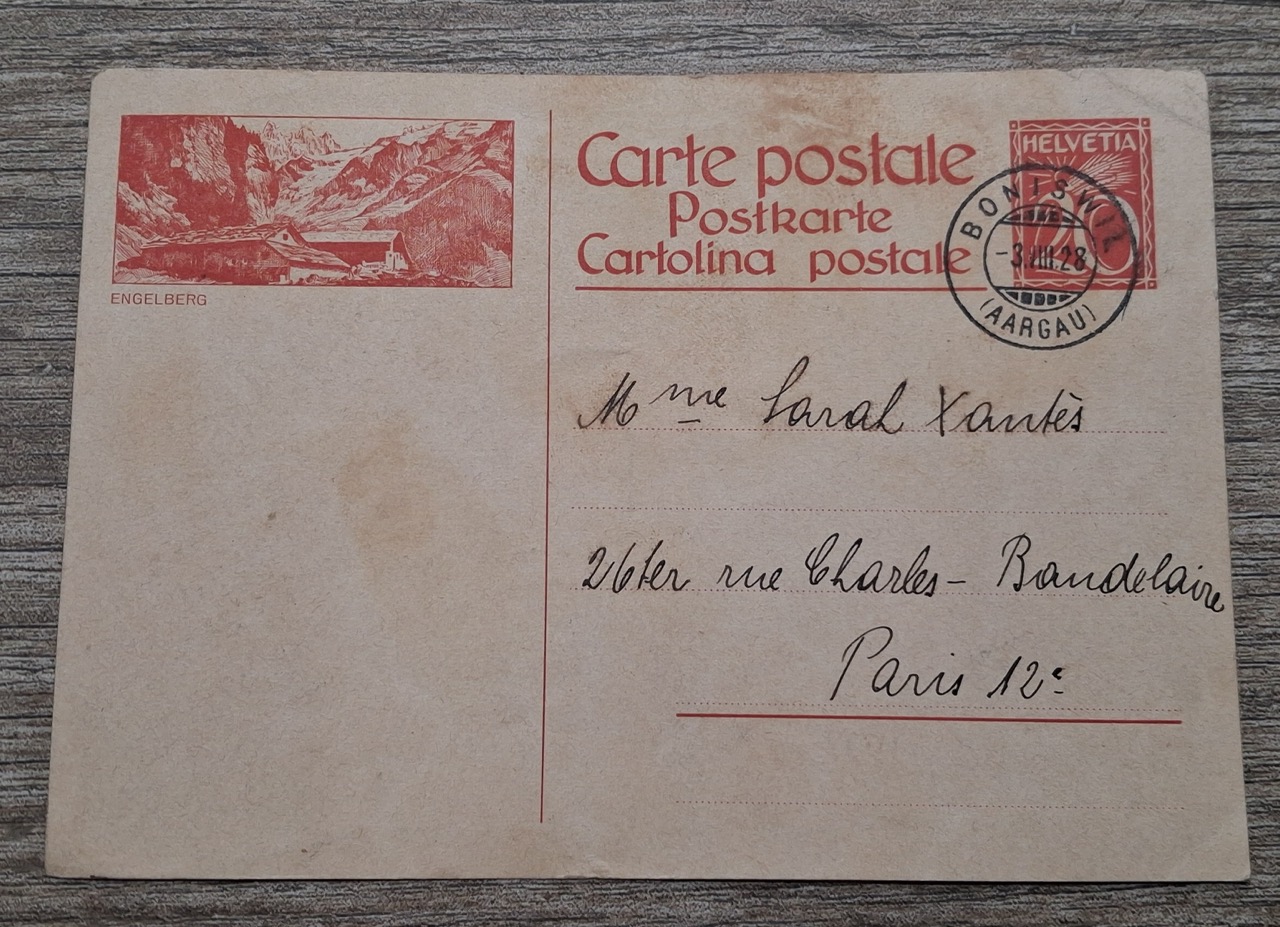 ENGELBERG
Carte postale
Postkarte
Cartolina postale
HELVETIA
20
BONISWIL
-3.VIII.28
(AARGAU)
Mme Sarah Xantès
26ter rue Charles-Baudelaire
Paris 12e